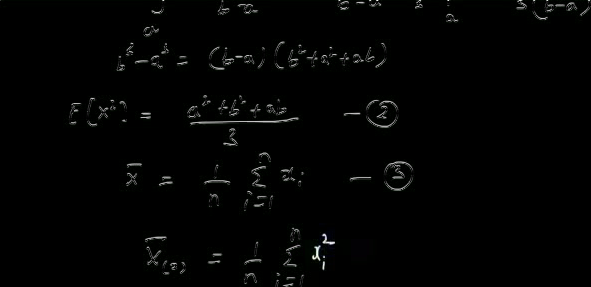 b³-a³ = (b-a) (b²+a²+ab)
E[X²] = (a²+b²+ab)/3 - ②
X̄ = 1/n Σ_{i=1}^{n} x_i - ③
X̄₍₂₎ = 1/n Σ_{i=1}^{n} x_i²